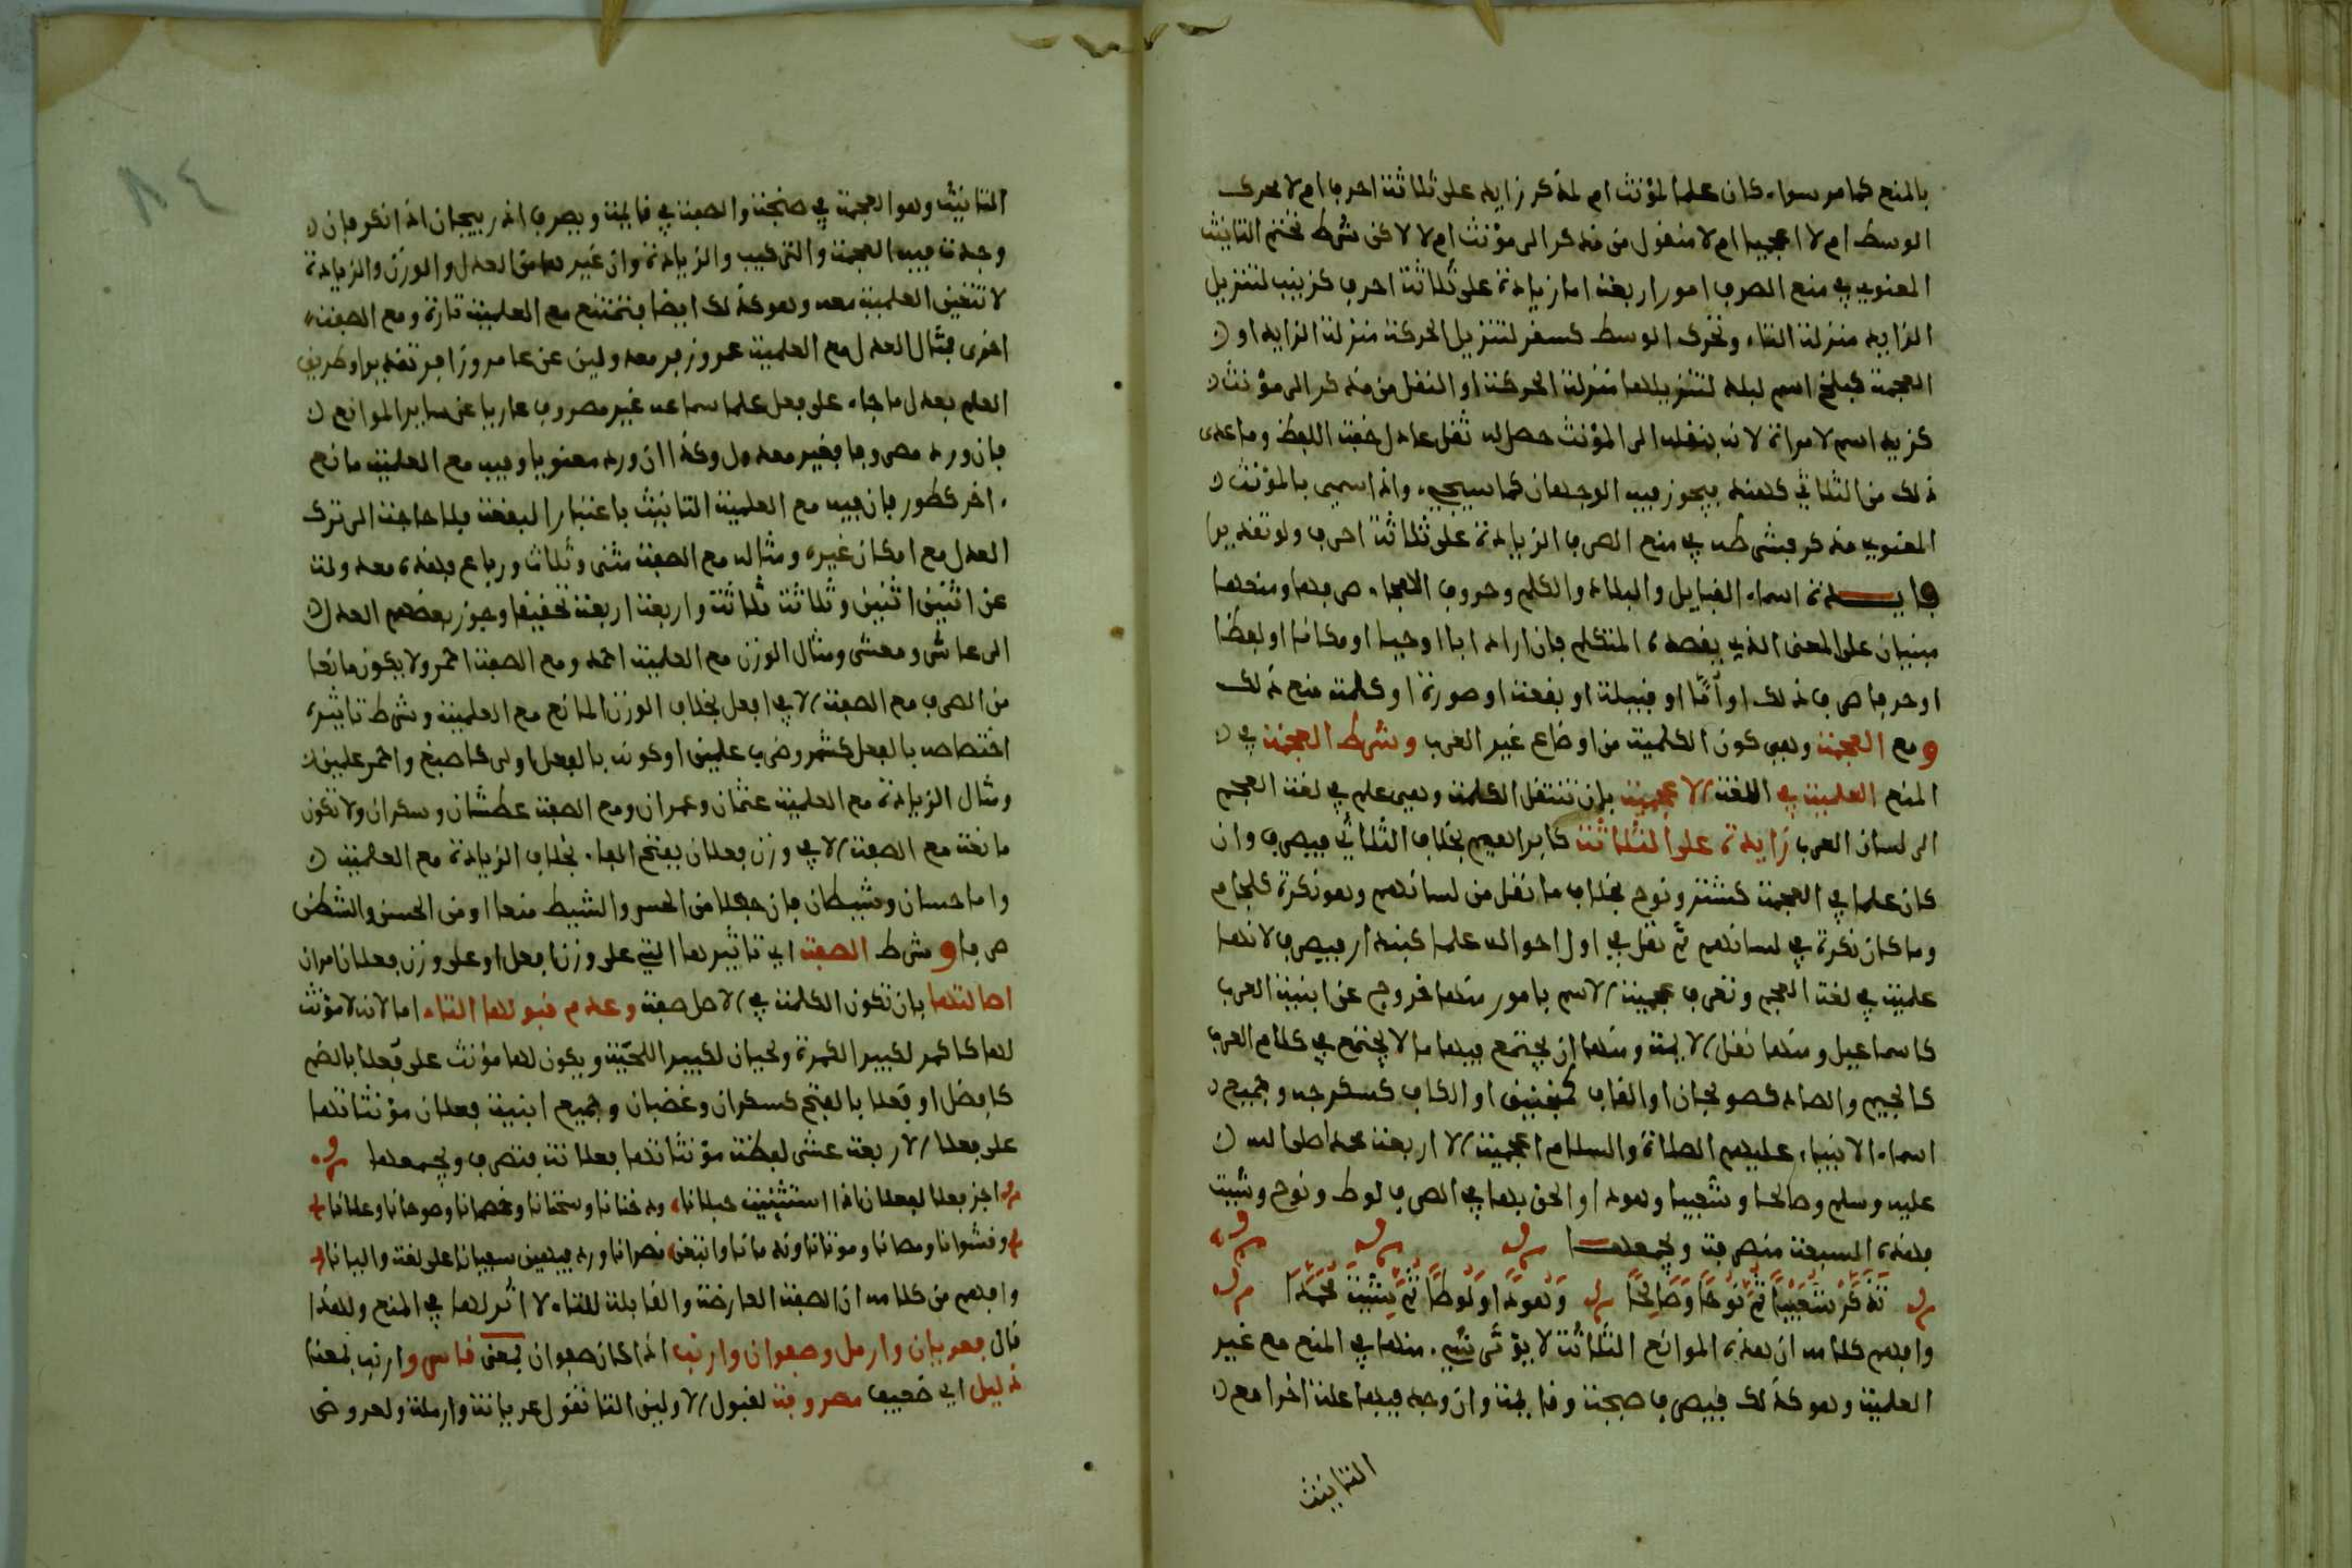 بالمنع كما مر سواء كان علما لمؤنث ام لمذكر زايد على ثلاثة احرف ام لا محرك
الوسط ام لا اعجميا ام لا منقول من مذكر الى مؤنث ام لا لاكن شرط تحتم التانيث
المعنوي في منع الصرف امور اربعة اما زيادة على ثلاثة احرف كزينب لتنزيل
الزايد منزلة التاء وتحرك الوسط كسقر لتنزيل الحركة منزلة الزايد او
العجمة كبلخ اسم لبلد لتنزيلها منزلة الحركة او النقل من مذكر الى مؤنث
كزيد اسم لامراة لانه بنقله الى المؤنث حصل له ثقل عادل خفة اللفظ وما عدى
ذلك من الثلاثي كهند يجوز فيه الوجهان كما سيجيء واذا سمي بالمؤنث
المعنوي مذكر فشرطه في منع الصرف الزيادة على ثلاثة احرف ولو تقديرا
فايــدة اسماء القبايل والبلاد والكلم وحروف الهجاء صرفها ومنعها
مبنيان على المعنى الذي يقصده المتكلم فان اراد ابا او حيا او مكانا او لفظا
او حرفا صرف ذلك او أمّا او قبيلة او بقعة او صورة او كلمة منع ذلك
ومع العجمة وهي كون الكلمة من اوضاع غير العرب وشرط العجمة في
المنع العلمية في اللغة الاعجمية بان تنتقل الكلمة وهي علم في لغة العجم
الى لسان العرب زايدة على الثلاثة كابراهيم بخلاف الثلاثي فيصرف وان
كان علما في العجمة كشتر ونوح بخلاف ما نقل من لسانهم وهو نكرة كلجام
وما كان نكرة في لسانهم ثم نقل في اول احواله علما كبندار فيصرف لانها
علمية في لغة العجم وتعرف عجمية الاسم بامور منها خروجه عن ابنية العرب
كاسماعيل ومنها نقل الايمة ومنها ان يجتمع فيها ما لا يجتمع في كلام العرب
كالجيم والصاد كصولجان او القاف كمنجنيق او الكاف كسكرجه وجميع
اسماء الانبياء عليهم الصلاة والسلام اعجمية الا اربعة محمد صلى الله
عليه وسلم وصالحا وشعيبا وهودا والحق بها في الصرف لوط ونوح وشيت
فهذه السبعة منصرفة ويجمعهــا
تَذَكَّرْ شُعَيْبًا ثُمَّ نُوحًا وَصَالِحًا وَهُودًا وَلُوطًا ثُمَّ شِيتَ مُحَمَّدًا
وافهم كلامه ان هذه الموانع الثلاثة لا يؤثر شيء منها في المنع مع غير
العلمية وهو كذلك فيصرف صنجة وقايمة وان وجد فيهما علة اخرا مع
التانيث
٨٤
التانيث وهو العجمة في صنجة والصفة في قايمة ويصرف اذربيجان اذا نكر فان
وجدت فيه العجمة والتركيب والزيادة وان غيرها من العدل والوزن والزيادة
لا تتعين العلمية معه وهو كذلك ايضا فتمتنع مع العلمية تارة ومع الصفة
اخرى فمثال العدل مع العلمية عمر وزفر معدولين عن عامر وزافر تقديرا وطريق
العلم بعدل ما جاء على فعل علما سماعه غير مصروف عاريا عن ساير الموانع
فان ورد مصروفا فغير معدول وكذا ان ورد معنويا وفيه مع العلمية مانع
اخر كطور فان فيه مع العلمية التانيث باعتبار البقعة فلا حاجة الى ترك
العدل مع امكان غيره ومثاله مع الصفة مثنى وثلاث ورباع فهذه معدولة
عن اثنين اثنين وثلاثة ثلاثة واربعة اربعة تخفيفا وجوز بعضهم العدل
الى عاشر ومعشر ومثال الوزن مع العلمية احمد ومع الصفة احمر ولا يكون مانعا
من الصرف مع الصفة الا في افعل بخلاف الوزن المانع مع العلمية وشرط تاثيره
اختصاصه بالفعل كشمر وضرب علمين او كونه بالفعل اولى كاصبع واحمر علمين
ومثال الزيادة مع العلمية عثمان وعمران ومع الصفة عطشان وسكران ولا تكون
مانعة مع الصفة الا في وزن فعلان بفتح الفاء بخلاف الزيادة مع العلمية
واما حسان وشيطان فان جعلا من الحس والشيط منعا او من الحسن والشطن
صرفا وشرط الصفة اي تاثيرها التي على وزن افعل او على وزن فعلان امران
اصالتها بان تكون الكلمة في الاصل صفة وعدم قبولها التاء اما لانه لا مؤنث
لها كاكمر لكبير الكمرة ولحيان لكبير اللحية ويكون لها مؤنث على فُعلا بالضم
كافضل او فَعلا بالفتح كسكران وغضبان وجميع ابنية فعلان مؤنثاتها
على فعلا الا اربعة عشر لفظة مؤنثاتها فعلانة فتصرف ويجمعها
اجز فعلا لفعلان اذا استثنيت حبلانا ودخنانا وسخنانا وخمصانا وصوحانا وعلانا
وقشوانا ومصانا وموتانا وندمانا واتبعن نصرانا ورد فيهن سيفانا على لغة واليانا
وافهم من كلامه ان الصفة العارضة والقابلة للتاء لا اثر لها في المنع ولهذا
قال فعريان وارمل وصفوان وارنب اذا كان صفوان بمعنى قاس وارنب بمعنا
ذليل اي ضعيف مصروفة لقبول الاولين التا تقول عريانة وارملة ولعروض